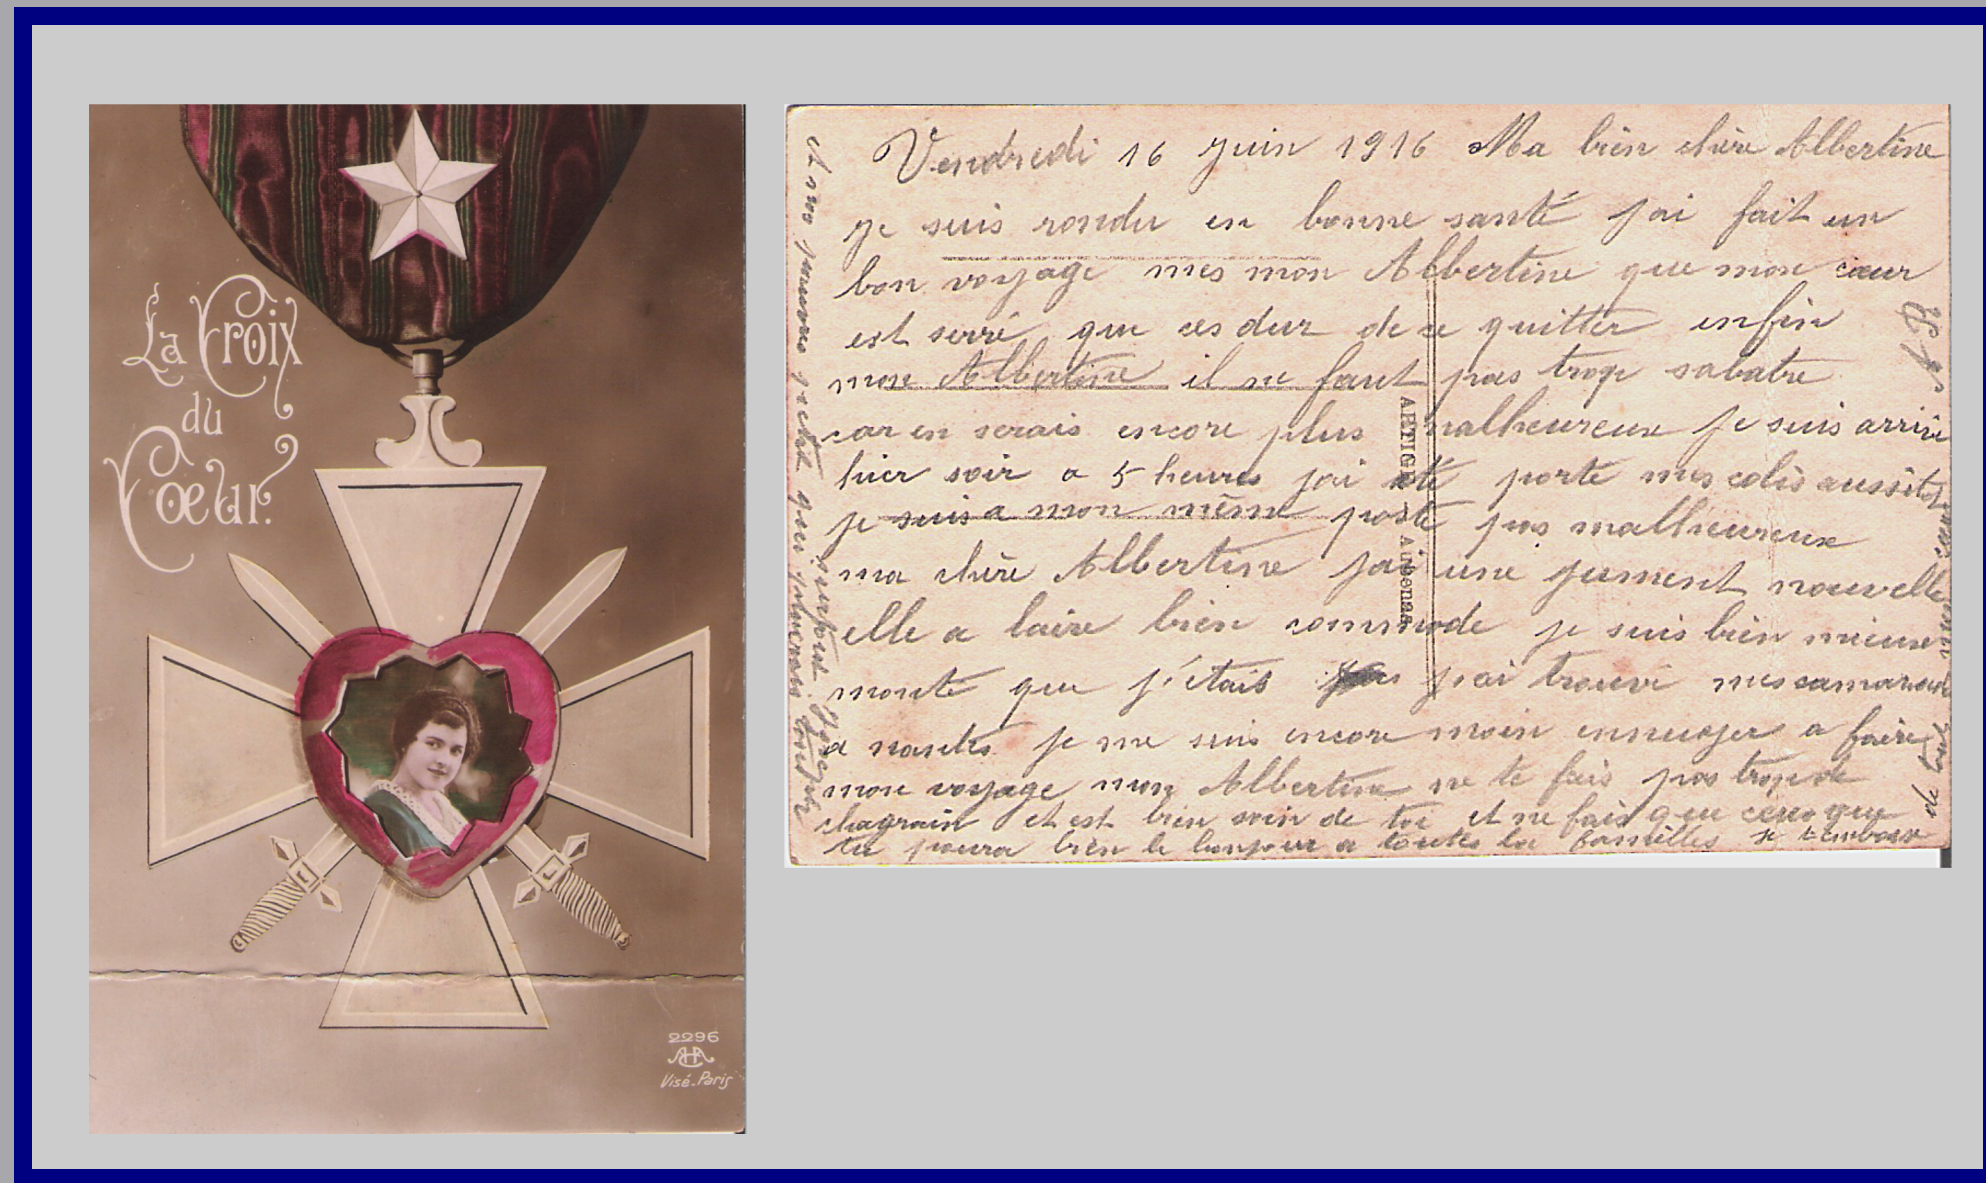 La Croix
du
Cœur.
2296
Visé-Paris
Vendredi 16 Juin 1916 Ma bien chère Albertine
je suis rondu en bonne santé jai fait un
bon voyage mes mon Albertine que mon cœur
est serré que ces dur de ce quitter enfin
mon Albertine il ne faut pas trop sabatre
car en serais encore plus malheureux je suis arrivé
hier soir a 5 heures jai été porté mes colis aussitot
je suis a mon même poste pas malheureux
ma chère Albertine jai une jument nouvelle
elle a laire bien commode je suis bien mieux
monté que j'étais jai trouvé mes camarade
a nantes je me suis encore moin ennuyer a faire
mon voyage mon Albertine ne te fais pas trop de
chagrain et est bien soin de toi et ne fais que ceux que
tu poura bien le bonjour a toutes la familles je t'embrasse
ARTIGE Aubenas